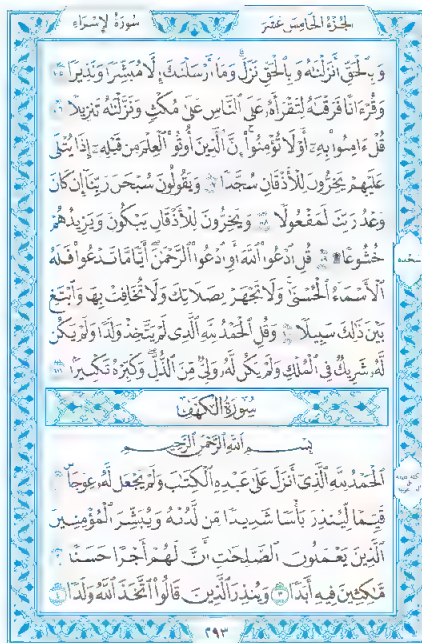 سُورَةُ الإِسْرَاءِ
الجُزْءُ الخَامِسَ عَشَرَ
وَبِالْحَقِّ أَنزَلْنَٰهُ وَبِالْحَقِّ نَزَلَ وَمَا أَرْسَلْنَٰكَ إِلَّا مُبَشِّرًا وَنَذِيرًا ١٠٥
وَقُرْءَانًا فَرَقْنَٰهُ لِتَقْرَأَهُۥ عَلَى النَّاسِ عَلَىٰ مُكْثٍ وَنَزَّلْنَٰهُ تَنزِيلًا ١٠٦
قُلْ ءَامِنُوا۟ بِهِۦٓ أَوْ لَا تُؤْمِنُوٓا۟ إِنَّ الَّذِينَ أُوتُوا۟ الْعِلْمَ مِن قَبْلِهِۦٓ إِذَا يُتْلَىٰ
عَلَيْهِمْ يَخِرُّونَ لِلْأَذْقَانِ سُجَّدًا ١٠٧ وَيَقُولُونَ سُبْحَٰنَ رَبِّنَآ إِن كَانَ
وَعْدُ رَبِّنَا لَمَفْعُولًا ١٠٨ وَيَخِرُّونَ لِلْأَذْقَانِ يَبْكُونَ وَيَزِيدُهُمْ
خُشُوعًا ۩ ١٠٩ قُلِ ادْعُوا۟ اللَّهَ أَوِ ادْعُوا۟ الرَّحْمَٰنَ أَيًّا مَّا تَدْعُوا۟ فَلَهُ
الْأَسْمَآءُ الْحُسْنَىٰ وَلَا تَجْهَرْ بِصَلَاتِكَ وَلَا تُخَافِتْ بِهَا وَابْتَغِ
بَيْنَ ذَٰلِكَ سَبِيلًا ١١٠ وَقُلِ الْحَمْدُ لِلَّهِ الَّذِى لَمْ يَتَّخِذْ وَلَدًا وَلَمْ يَكُن
لَّهُۥ شَرِيكٌ فِى الْمُلْكِ وَلَمْ يَكُن لَّهُۥ وَلِىٌّ مِّنَ الذُّلِّ وَكَبِّرْهُ تَكْبِيرًۢا ١١١
سُورَةُ الْكَهْفِ
بِسْمِ اللَّهِ الرَّحْمَٰنِ الرَّحِيمِ
الْحَمْدُ لِلَّهِ الَّذِىٓ أَنزَلَ عَلَىٰ عَبْدِهِ الْكِتَٰبَ وَلَمْ يَجْعَل لَّهُۥ عِوَجَا ١
قَيِّمًا لِّيُنذِرَ بَأْسًا شَدِيدًا مِّن لَّدُنْهُ وَيُبَشِّرَ الْمُؤْمِنِينَ
الَّذِينَ يَعْمَلُونَ الصَّٰلِحَٰتِ أَنَّ لَهُمْ أَجْرًا حَسَنًا ٢
مَّٰكِثِينَ فِيهِ أَبَدًا ٣ وَيُنذِرَ الَّذِينَ قَالُوا۟ اتَّخَذَ اللَّهُ وَلَدًا ٤
سجدة
٢٩٣